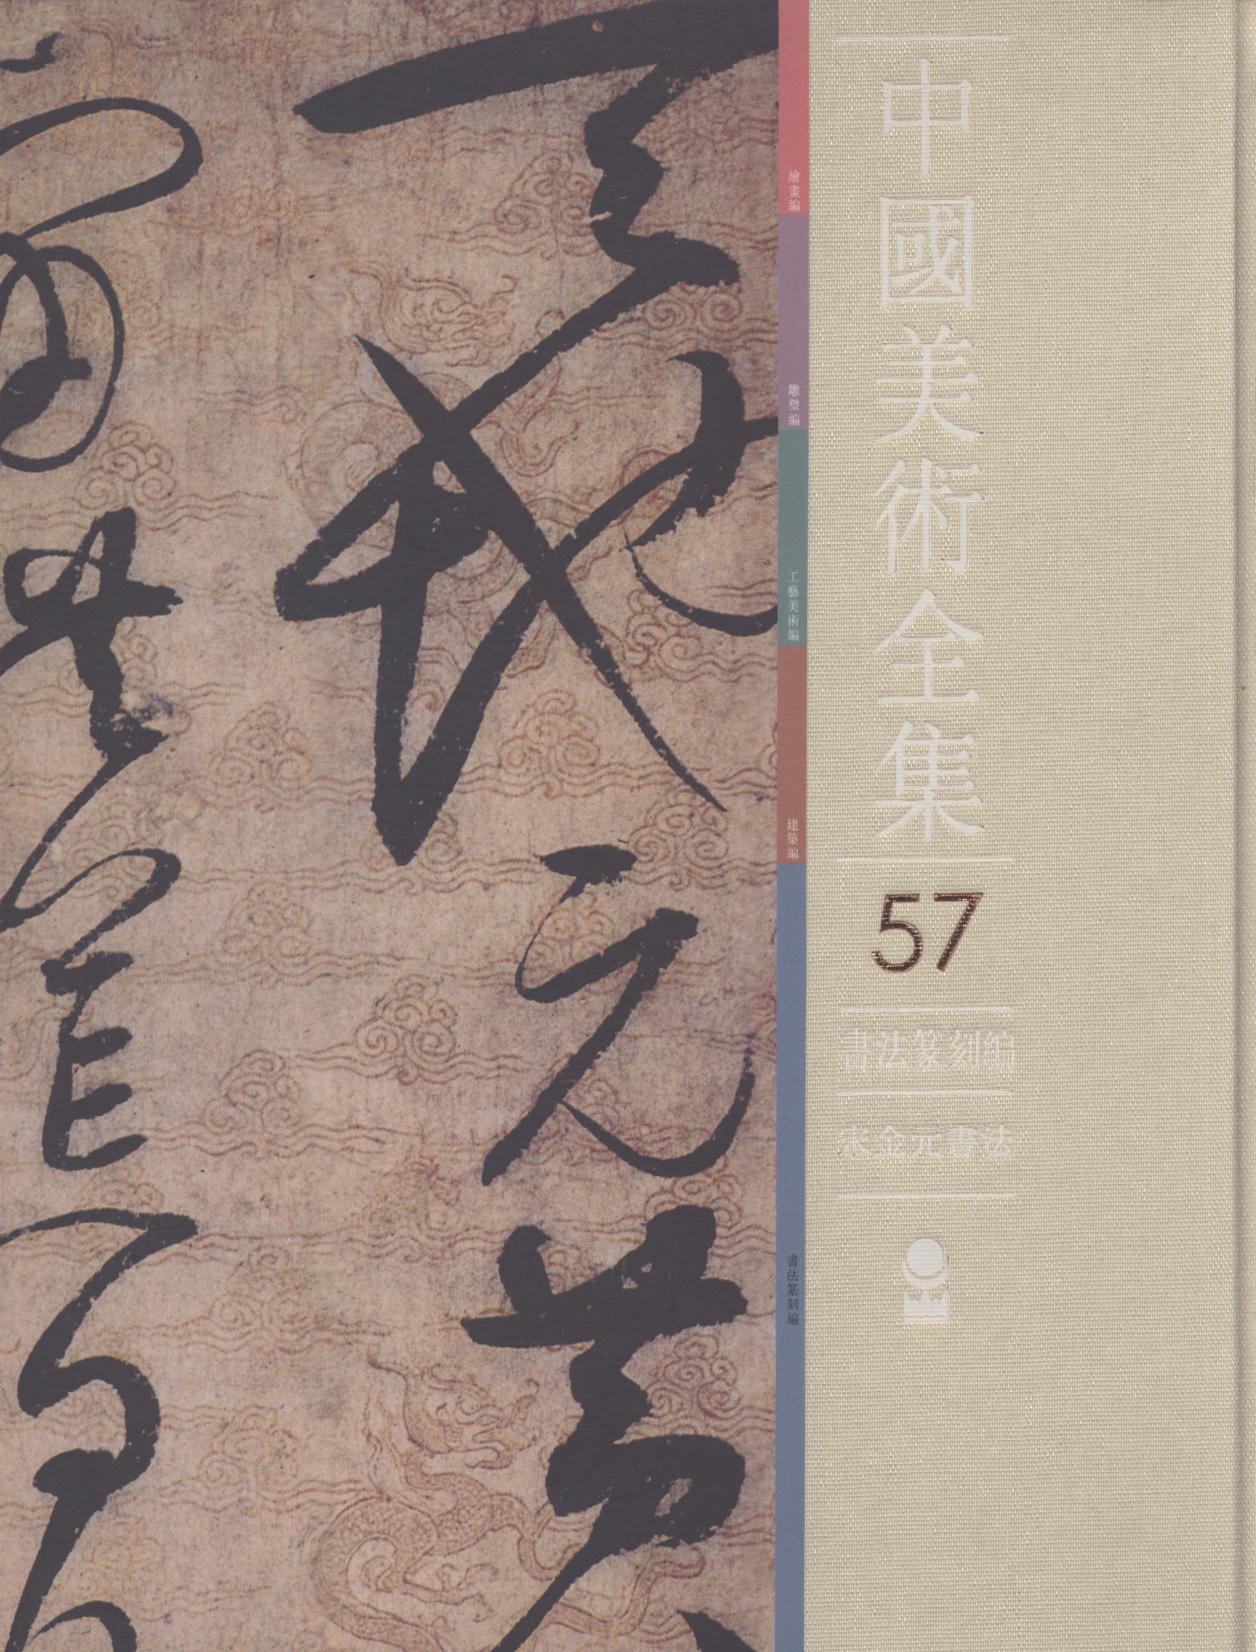 中國美術全集
57
書法篆刻編
宋金元書法
繪畫編
雕塑編
工藝美術編
建築編
書法篆刻編
天地玄黃